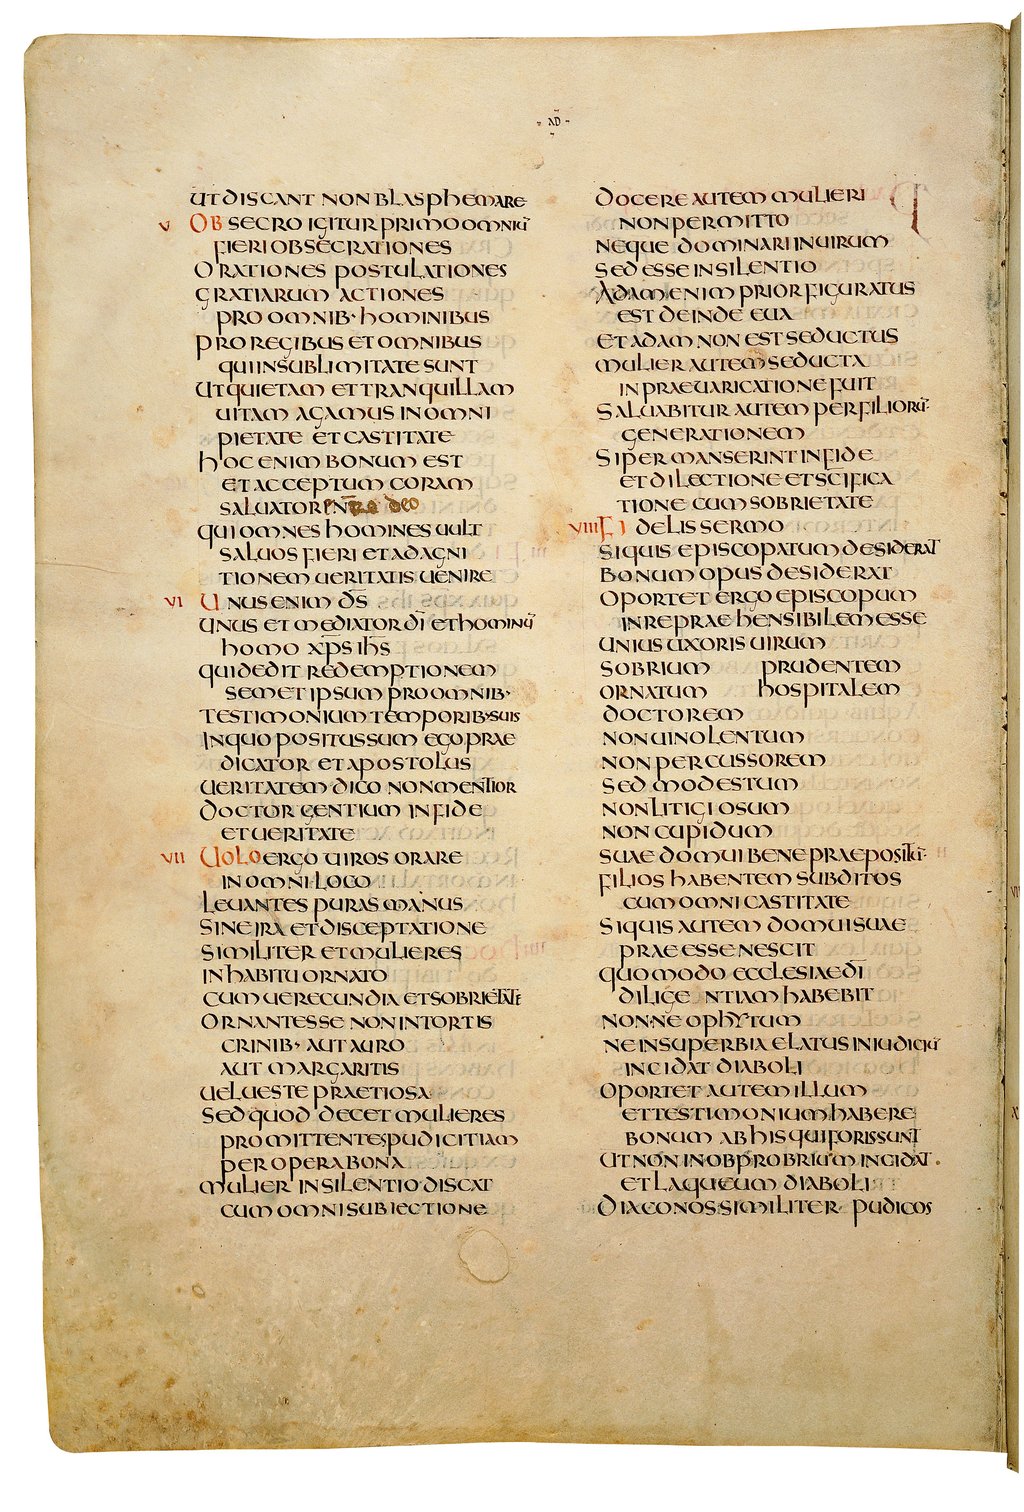 ·AD·
UT DISCANT NON BLASPHEMARE
V OBSECRO IGITUR PRIMO OMNIŪ
FIERI OBSECRATIONES
ORATIONES POSTULATIONES
GRATIARUM ACTIONES
PRO OMNIB· HOMINIBUS
PRO REGIBUS ET OMNIBUS
QUI IN SUBLIMITATE SUNT
UT QUIETAM ET TRANQUILLAM
UITAM AGAMUS IN OMNI
PIETATE ET CASTITATE
HOC ENIM BONUM EST
ET ACCEPTUM CORAM
SALUATORE N̄RO DEO
QUI OMNES HOMINES UULT
SALUOS FIERI ET AD AGNI
TIONEM UERITATIS UENIRE
VI UNUS ENIM D̄S
UNUS ET MEDIATOR D̄I ET HOMINŪ
HOMO XP̄S IH̄S
QUI DEDIT REDEMPTIONEM
SEMET IPSUM PRO OMNIB·
TESTIMONIUM TEMPORIB· SUIS
IN QUO POSITUS SUM EGO PRAE
DICATOR ET APOSTOLUS
UERITATEM DICO NON MENTIOR
DOCTOR GENTIUM IN FIDE
ET UERITATE
VII UOLO ERGO UIROS ORARE
IN OMNI LOCO
LEUANTES PURAS MANUS
SINE IRA ET DISCEPTATIONE
SIMILITER ET MULIERES
IN HABITU ORNATO
CUM UERECUNDIA ET SOBRIETATE
ORNANTES SE NON IN TORTIS
CRINIB· AUT AURO
AUT MARGARITIS
UEL UESTE PRAETIOSA
SED QUOD DECET MULIERES
PROMITTENTES PUDICITIAM
PER OPERA BONA
MULIER IN SILENTIO DISCAT
CUM OMNI SUBIECTIONE
DOCERE AUTEM MULIERI
NON PERMITTO
NEQUE DOMINARI IN UIRUM
SED ESSE IN SILENTIO
ADAM ENIM PRIOR FIGURATUS
EST DEINDE EUA
ET ADAM NON EST SEDUCTUS
MULIER AUTEM SEDUCTA
IN PRAEUARICATIONE FUIT
SALUABITUR AUTEM PER FILIORŪ·
GENERATIONEM
SI PERMANSERINT IN FIDE
ET DILECTIONE ET SC̄IFICA
TIONE CUM SOBRIETATE
VIII FIDELIS SERMO
SI QUIS EPISCOPATUM DESIDERAT
BONUM OPUS DESIDERAT
OPORTET ERGO EPISCOPUM
INREPRAEHENSIBILEM ESSE
UNIUS UXORIS UIRUM
SOBRIUM PRUDENTEM
ORNATUM HOSPITALEM
DOCTOREM
NON UINOLENTUM
NON PERCUSSOREM
SED MODESTUM
NON LITIGIOSUM
NON CUPIDUM
SUAE DOMUI BENE PRAEPOSITŪ·
FILIOS HABENTEM SUBDITOS
CUM OMNI CASTITATE
SI QUIS AUTEM DOMUI SUAE
PRAEESSE NESCIT
QUOMODO ECCLESIAE D̄I
DILIGENTIAM HABEBIT
NON NEOPHYTUM
NE IN SUPERBIA ELATUS IN IUDICIŪ
INCIDAT DIABOLI
OPORTET AUTEM ILLUM
ET TESTIMONIUM HABERE
BONUM AB HIS QUI FORIS SUNT
UT NON IN OBPROBRIUM INCIDAT.
ET LAQUEUM DIABOLI
DIACONOS SIMILITER PUDICOS